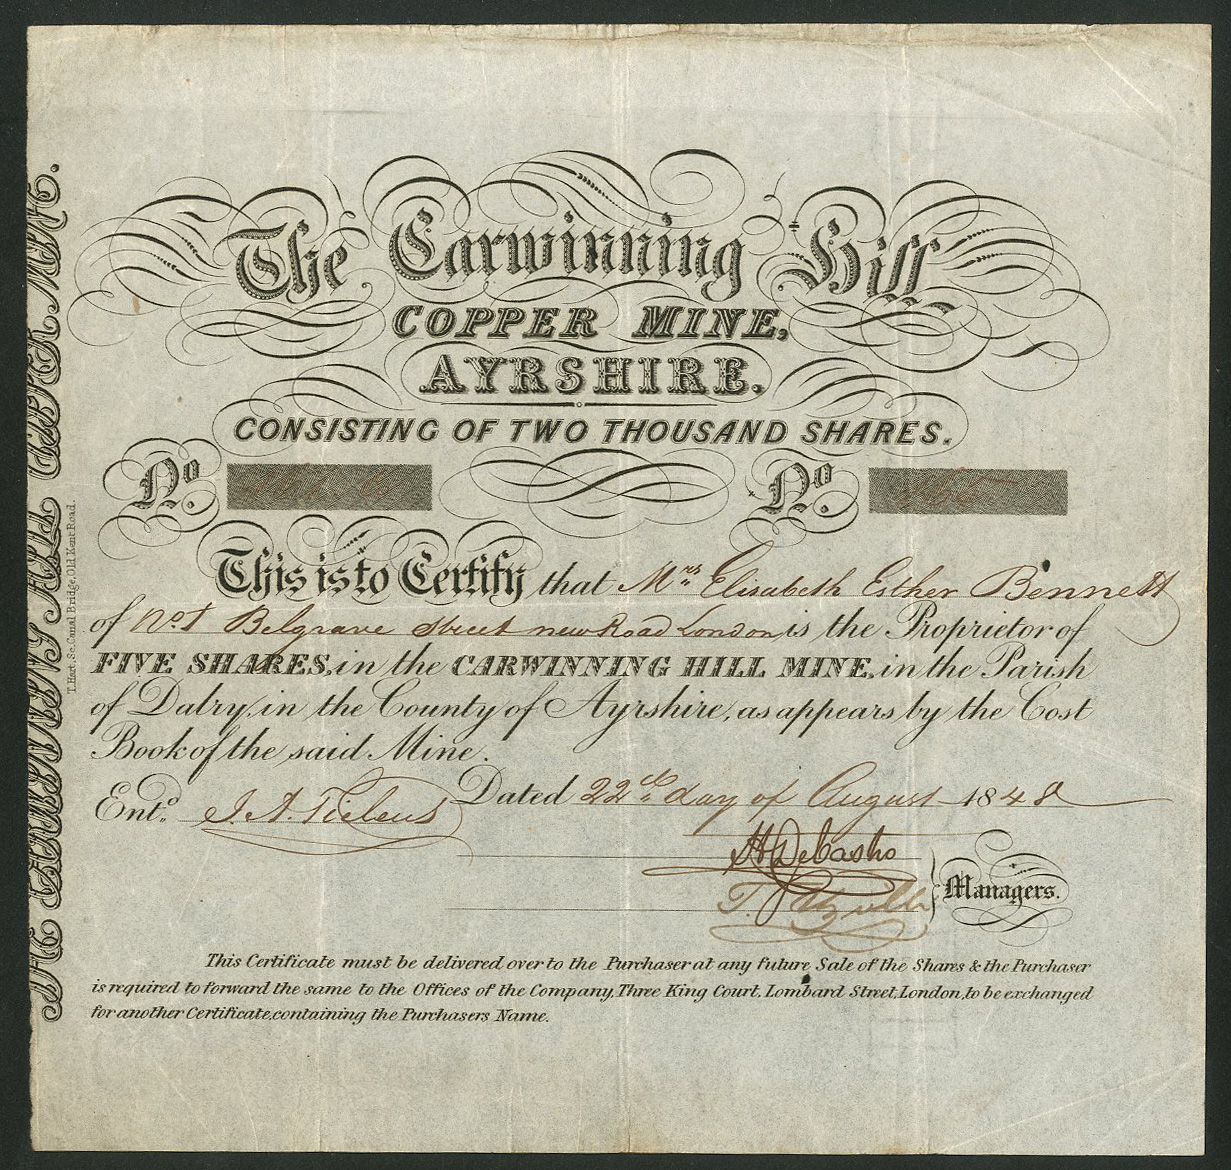 The Carwinning Hill
COPPER MINE,
AYRSHIRE.
CONSISTING OF TWO THOUSAND SHARES.
No. No.
This is to Certify that Mrs. Elisabeth Esther Bennett
of No. 1 Belgrave Street new Road London is the Proprietor of
FIVE SHARES, in the CARWINNING HILL MINE, in the Parish
of Dalry, in the County of Ayrshire, as appears by the Cost
Book of the said Mine.
Dated 22nd day of August 1848
Entd.
Managers.
This Certificate must be delivered over to the Purchaser at any future Sale of the Shares & the Purchaser
is required to forward the same to the Offices of the Company, Three King Court, Lombard Street, London, to be exchanged
for another Certificate, containing the Purchasers Name.
T. Hart, Sc. Canal Bridge, Old Kent Road.